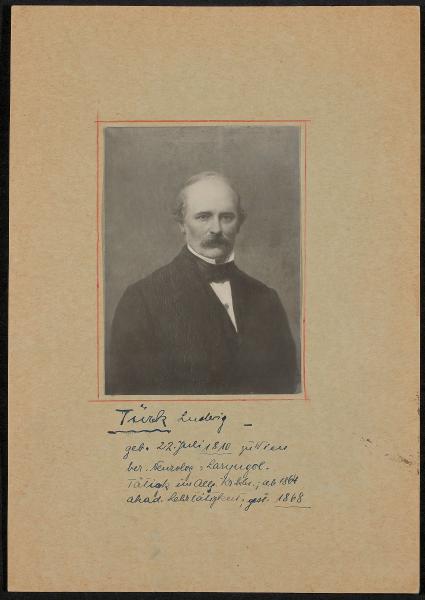 Türck Ludwig –
geb. 22. Juli 1810 zu Wien
ber. Neurolog u. Laryngol.
Tätigk. im Allg. Krkhs.; ab 1864
akad. Lehrtätigkeit, gest. 1868